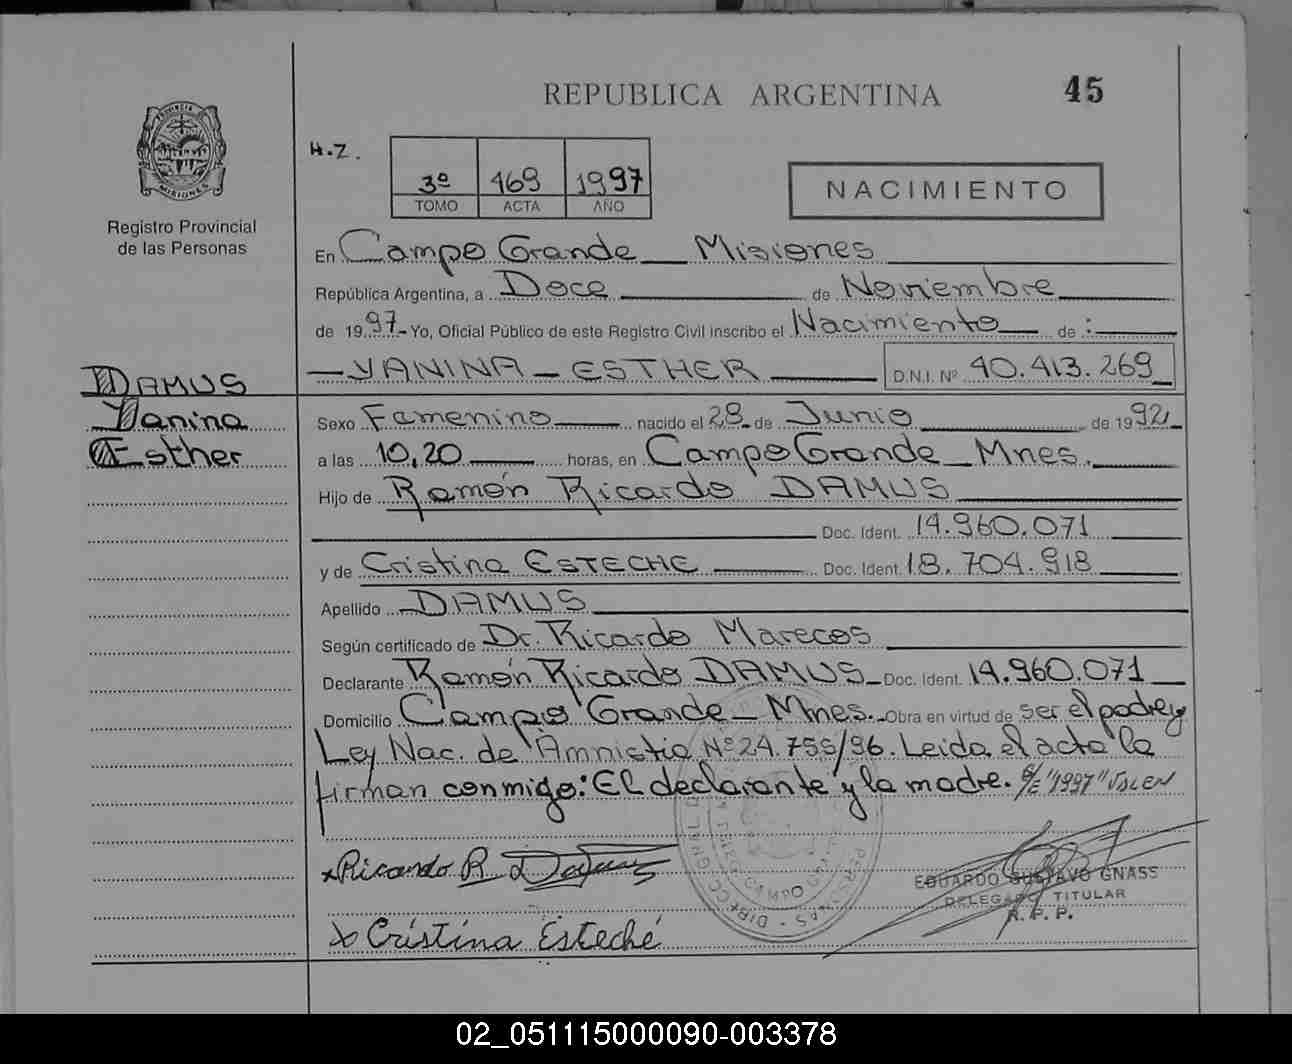 REPUBLICA ARGENTINA
45
H.Z.
3º 169 1997
TOMO ACTA AÑO
NACIMIENTO
PROVINCIA
MISIONES
Registro Provincial
de las Personas
En Campo Grande Misiones
República Argentina, a Doce de Noviembre
de 1997 Yo, Oficial Público de este Registro Civil inscribo el Nacimiento de :
YANINA ESTHER D.N.I. Nº 40.413.269
DAMUS
Yanina
Esther
Sexo Femenino nacido el 28 de Junio de 1992
a las 10,20 horas, en Campo Grande Mnes.
Hijo de Ramón Ricardo DAMUS
Doc. Ident. 14.960.071
y de Cristina ESTECHE Doc. Ident. 18.704.918
Apellido DAMUS
Según certificado de Dr. Ricardo Marecos
Declarante Ramón Ricardo DAMUS Doc. Ident. 14.960.071
Domicilio Campo Grande Mnes. Obra en virtud de ser el padre y
Ley Nac. de Amnistia Nº 24.755/96. Leida el acta la
firman conmigo: El declarante y la madre. S/E "1997" VALEN
x Ricardo R. Damus
EDUARDO GUSTAVO GNASS
DELEGADO TITULAR
R. P. P.
x Cristina Esteché
02_051115000090-003378